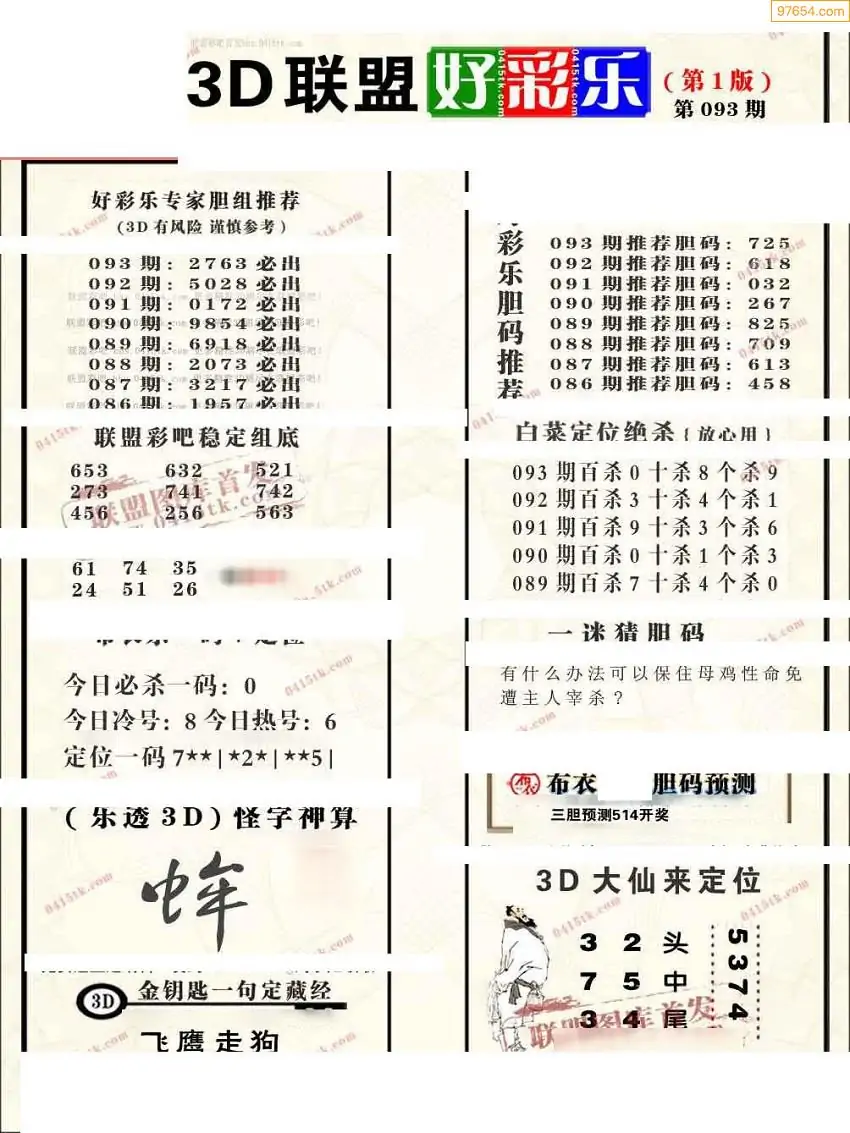 97654.com
3D联盟好彩乐
(第1版)
第093期
好彩乐专家胆组推荐
(3D有风险 谨慎参考)
093期: 2763必出
092期: 5028必出
091期: 0172必出
090期: 9854必出
089期: 6918必出
088期: 2073必出
087期: 3217必出
086期: 1957必出
联盟彩吧稳定组底
653 632 521
273 741 742
456 256 563
联盟图库首发
0415tk.com
61 74 35
24 51 26
今日必杀一码: 0
今日冷号: 8 今日热号: 6
定位一码7**|*2*|**5|
(乐透3D)怪字神算
0415tk.com
3D 金钥匙一句定藏经
飞鹰走狗
好彩乐胆码推荐
093期推荐胆码: 725
092期推荐胆码: 618
091期推荐胆码: 032
090期推荐胆码: 267
089期推荐胆码: 825
088期推荐胆码: 709
087期推荐胆码: 613
086期推荐胆码: 458
白菜定位绝杀{放心用}
093期百杀0十杀8个杀9
092期百杀3十杀4个杀1
091期百杀9十杀3个杀6
090期百杀0十杀1个杀3
089期百杀7十杀4个杀0
一迷猜胆码
有什么办法可以保住母鸡性命免
遭主人宰杀?
布衣 胆码预测
三胆预测514开奖
3D大仙来定位
3 2 头
7 5 中
3 4 尾
5374
联盟图库首发